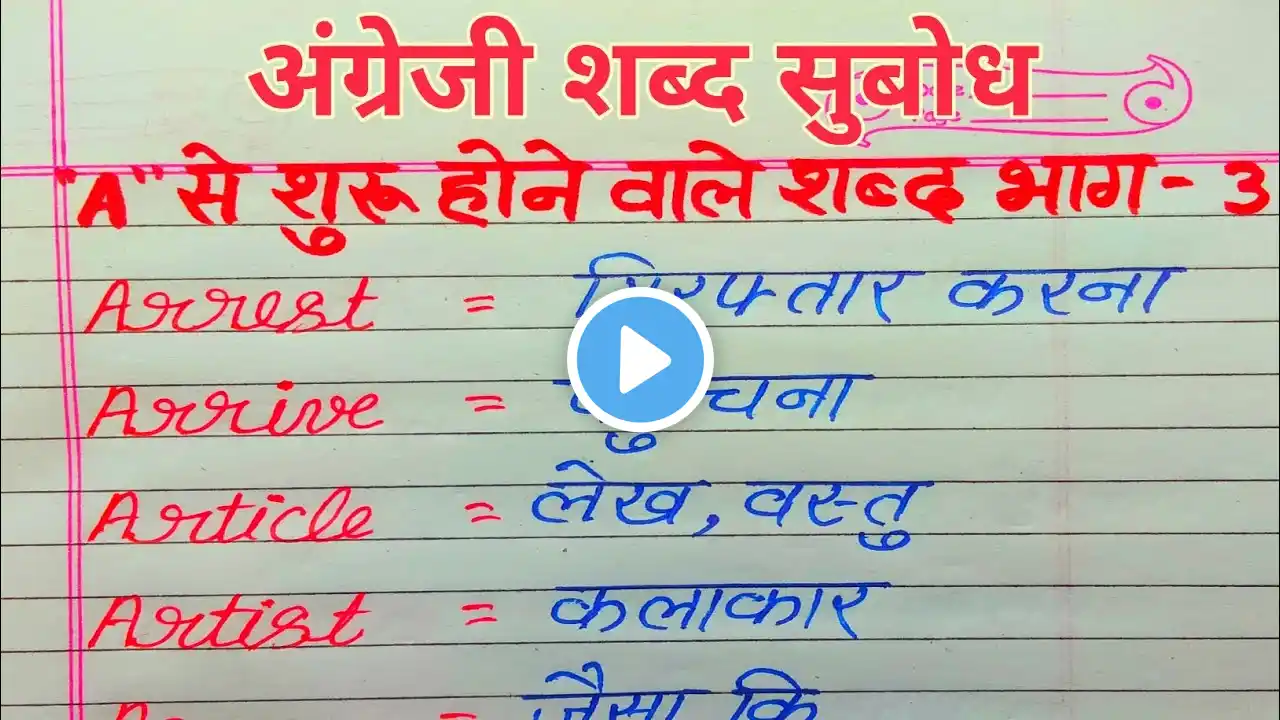 अंग्रेजी शब्द सुबोध
"A" से शुरू होने वाले शब्द भाग - 3
Arrest = करना
Arrive =
Article = लेख, वस्तु
Artist = कलाकार
= जैसा कि